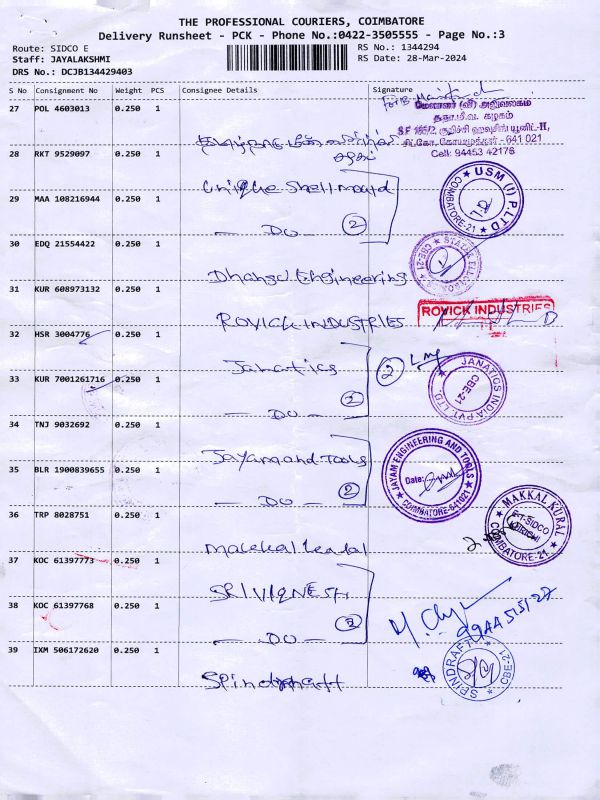 THE PROFESSIONAL COURIERS, COIMBATORE
Delivery Runsheet - PCK - Phone No.:0422-3505555 - Page No.:3
Route: SIDCO E
Staff: JAYALAKSHMI
DRS No.: DCJB134429403
RS No.: 1344294
RS Date: 28-Mar-2024
S No Consignment No Weight PCS Consignee Details Signature
27 POL 4603013 0.250 1
மேலாளர் (வி) அலுவலகம்
கழகம்
641 021
Cell: 94453 42176
28 RKT 9529097 0.250 1 Unique Shell mould
29 MAA 108216944 0.250 1 — DO — 2
USM (I) P.LTD
COIMBATORE-21
30 EDQ 21554422 0.250 1 Engineering
CBE-21
31 KUR 608973132 0.250 1 ROVICK INDUSTRIES
ROVICK INDUSTRIES
32 HSR 3004776 0.250 1 Janatics
33 KUR 7001261716 0.250 1 — DO — 2
2
JANATICS INDIA PVT. LTD.
CBE-21
34 TNJ 9032692 0.250 1 Jayam and Tools
35 BLR 1900839655 0.250 1 — DO — 2
JAYAM ENGINEERING AND TOOLS
Date:
COIMBATORE-641021
36 TRP 8028751 0.250 1
MAKKAL KURAL
COIMBATORE-21
37 KOC 61397773 0.250 1 SRI VIGNESH
38 KOC 61397768 0.250 1 — DO — 2
39 IXM 506172620 0.250 1 Spindraft
SPINDRAFT
CBE-21